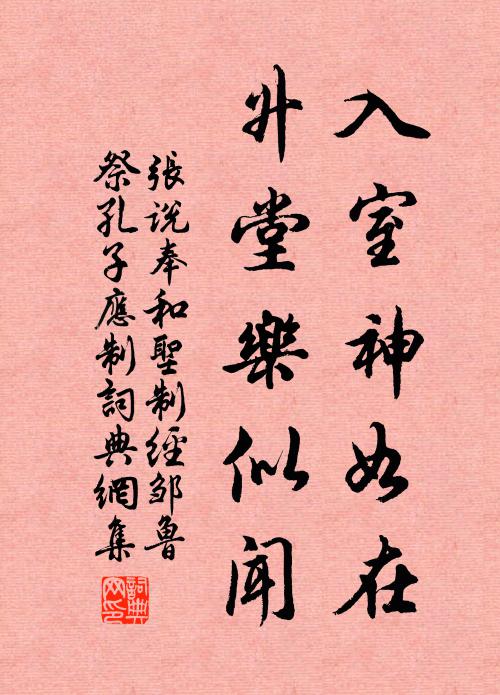 入室神如在
升堂樂似聞
張說奉和聖制經邹魯
祭孔子應制詞典網集
詞典網印